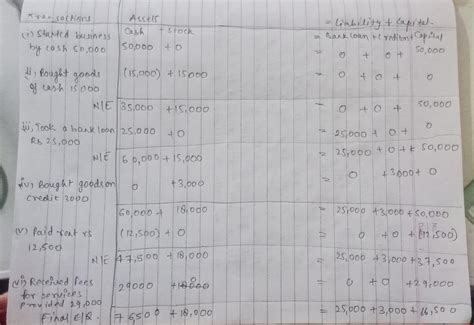 Transactions Assets = Liability + Capital
Cash + Stock = Bank loan + creditors + Capital
(i) Started business 50,000 + 0 = 0 + 0 + 50,000
by cash 50,000
ii) Bought goods (15,000) + 15000 = 0 + 0 + 0
of cash 15,000
N/E 35,000 + 15,000 = 0 + 0 + 50,000
iii) Took a bank loan 25,000 + 0 = 25,000 + 0 + 0
Rs 25,000
N/E 60,000 + 15,000 = 25,000 + 0 + 50,000
iv) Bought goods on 0 + 3,000 = 0 + 3000 + 0
credit 3000
60,000 + 18,000 = 25,000 + 3,000 + 50,000
(v) Paid rent rs (12,500) + 0 = 0 + 0 + (12,500)
12,500
N/E 47,500 + 18,000 = 25,000 + 3,000 + 37,500
vi) Received fees 29000 + 0 = 0 + 0 + 29,000
for services
provided 29,000
Final E/Q. 76500 + 18,000 = 25,000 + 3,000 + 66,500